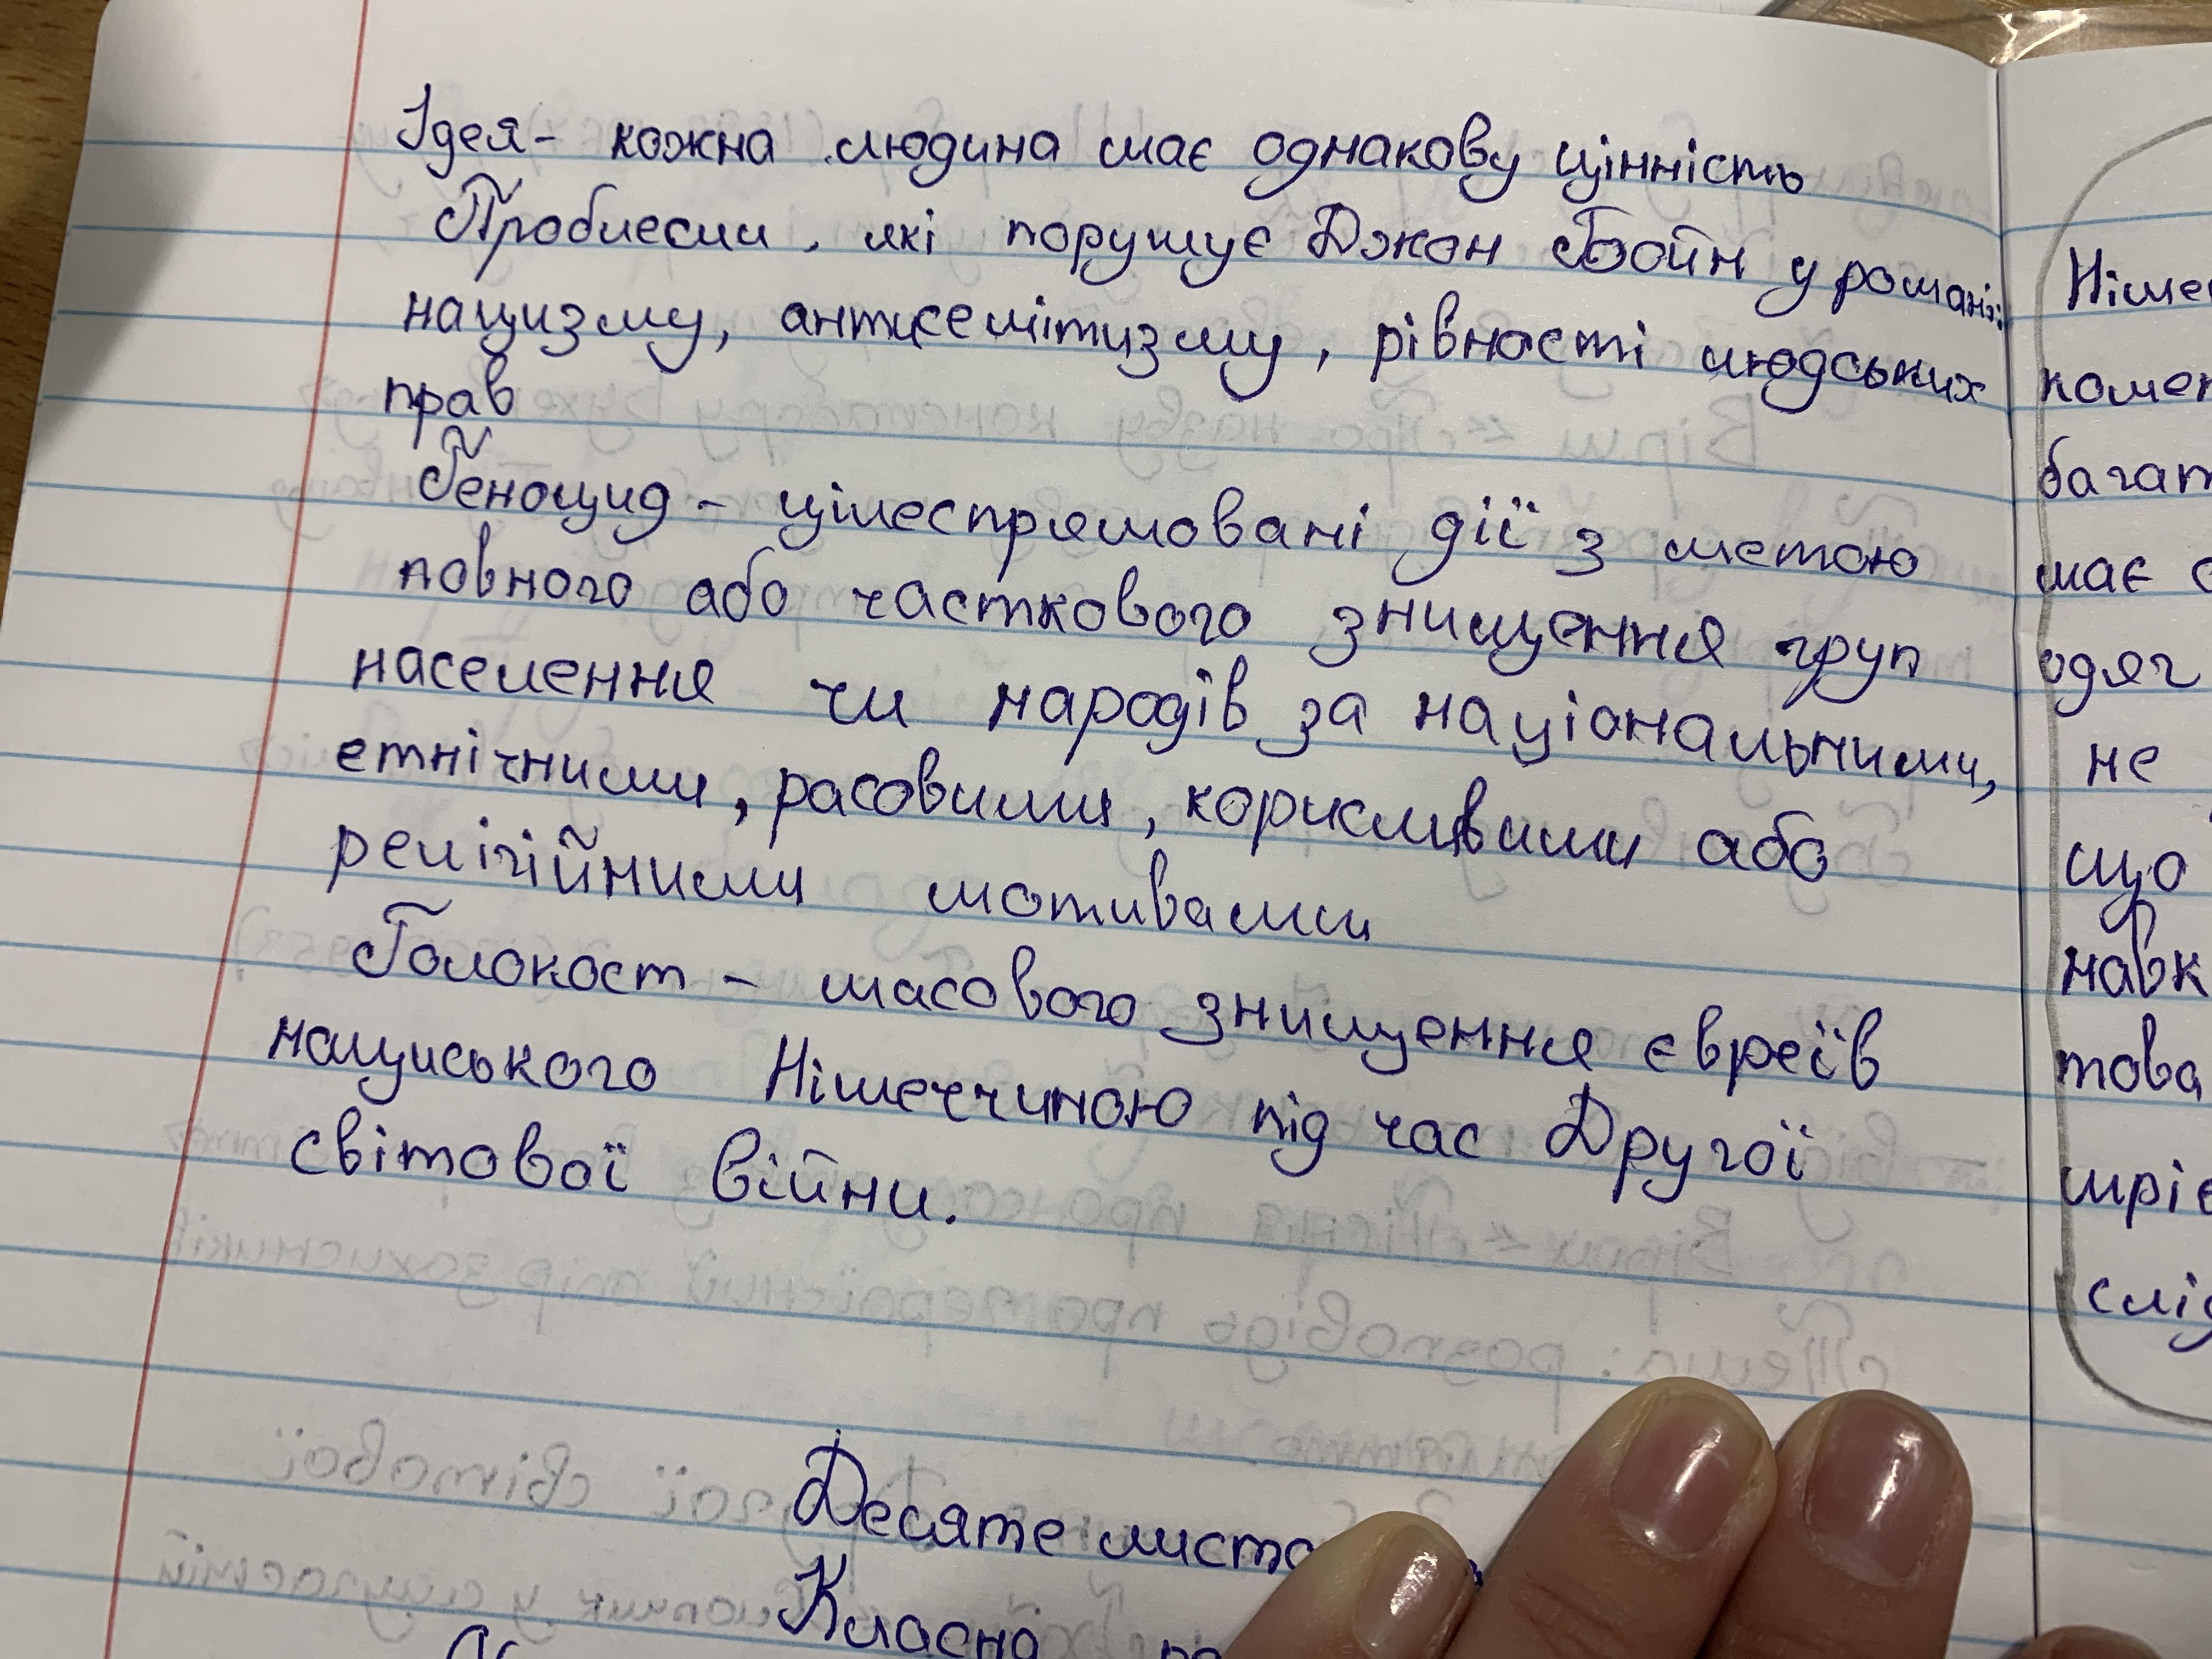 Ідея - кожна людина має однакову цінність
Проблеми, які порушує Джон Бойн у романі:
нацизму, антисемітизму, рівності людських
прав
Геноцид - цілеспрямовані дії з метою
повного або часткового знищення груп
населення чи народів за національними,
етнічними, расовими, корисливими або
релігійними мотивами
Голокост - масового знищення євреїв
нациського Німеччиною під час Другої
світової війни.
Десяте
Класна
багат
має
одяг
не
що
навк
това